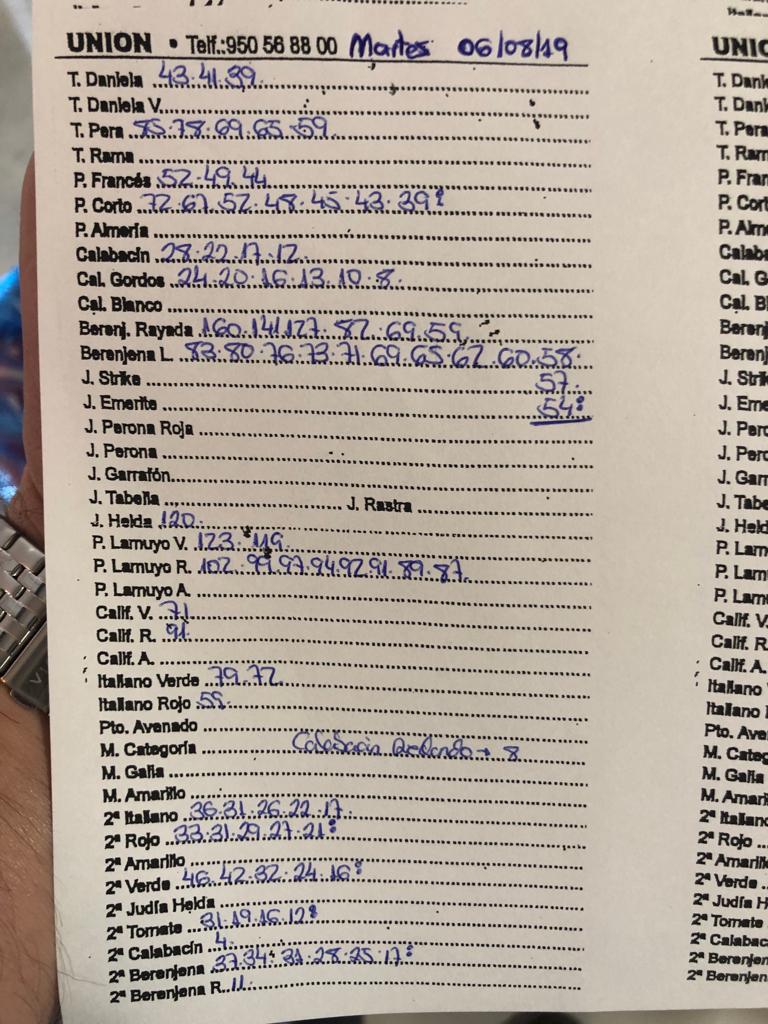 UNION • Telf.:950 56 88 00 Martes 06/08/19
T. Daniela 43.41.39
T. Daniela V.
T. Pera 85.78.69.65.59
T. Rama
P. Francés 52.49.44
P. Corto 72.67.52.48.45.43.39
P. Almería
Calabacín 28.22.17.12
Cal. Gordos 24.20.16.13.10.8.
Cal. Blanco
Berenj. Rayada 160.141.127.82.69.59
Berenjena L. 83.80.76.73.71.69.65.62.60.58.
J. Strike 57.
J. Emerite 54:
J. Perona Roja
J. Perona
J. Garrafón
J. Tabella J. Rastra
J. Helda 120.
P. Lamuyo V. 123.119
P. Lamuyo R. 102.99.97.94.92.91.89.87
P. Lamuyo A.
Calif. V. 71
Calif. R. 91
Calif. A.
Italiano Verde 79.72
Italiano Rojo
Pto. Avenado
M. Categoría Calabacín Redondo → 8
M. Galia
M. Amarillo
2ª Italiano 36.31.26.22.17
2ª Rojo 33.31.29.27.21:
2ª Amarillo
2ª Verde 46.42.32.24.16:
2ª Judía Helda
2ª Tomate 31.19.16.12:
2ª Calabacín 4.
2ª Berenjena 37.34.31.28.25.17:
2ª Berenjena R. 11.
UNIO
T. Dani
T. Dani
T. Pera
T. Ram
P. Fran
P. Cort
P. Alm
Calaba
Cal. G
Cal. Bl
Berenj
Berenj
J. Strik
J. Eme
J. Pero
J. Pero
J. Garr
J. Tabe
J. Held
P. Lam
P. Lam
P. Lam
Calif. V
Calif. R
Calif. A.
Italiano
Italiano
Pto. Ave
M. Categ
M. Galia
M. Amari
2ª Italiano
2ª Rojo
2ª Amarill
2ª Verde
2ª Judía H
2ª Tomate
2ª Calabac
2ª Berenjen
2ª Berenjen